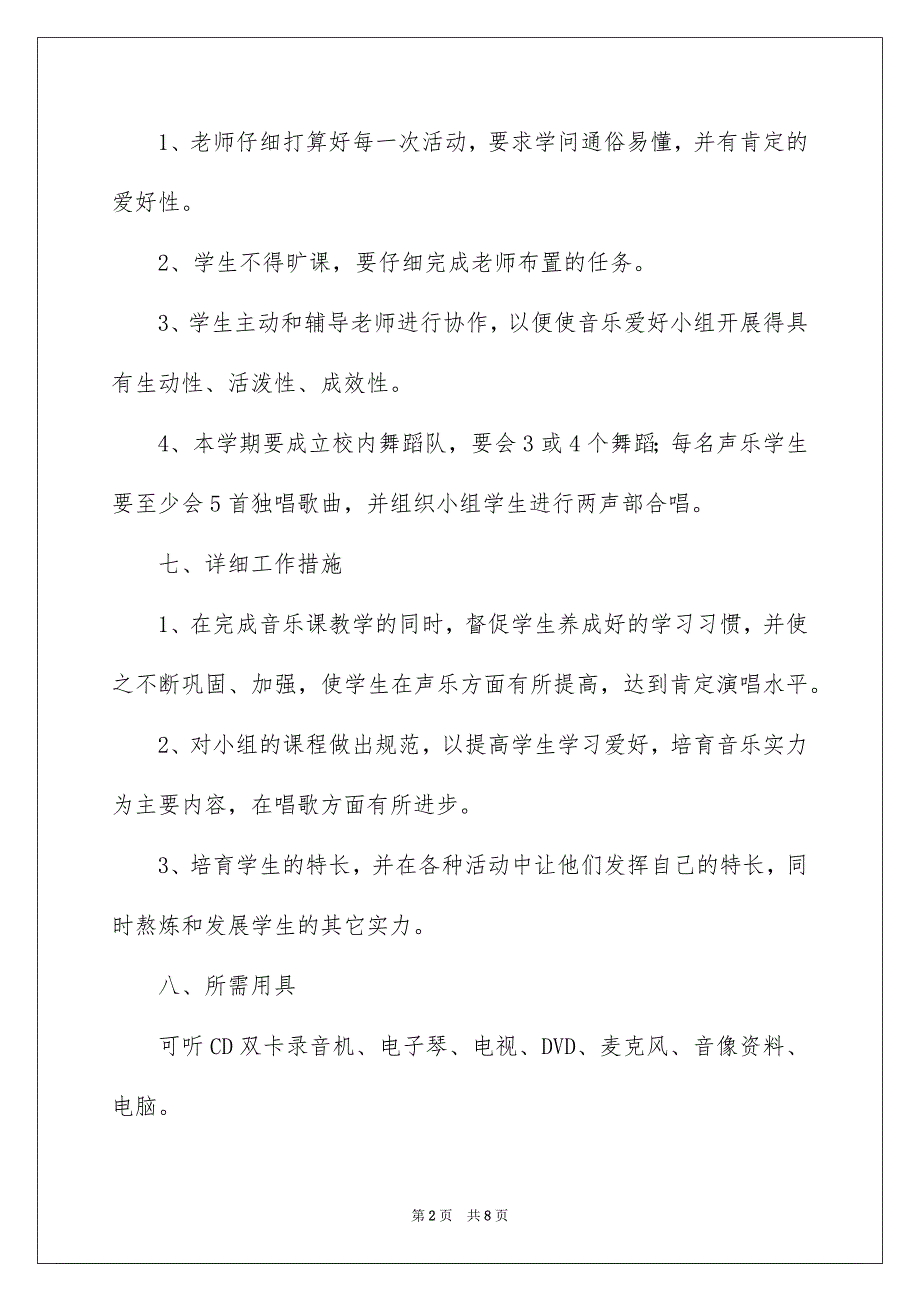 1、老师仔细打算好每一次活动，要求学问通俗易懂，并有肯定的
爱好性。
2、学生不得旷课，要仔细完成老师布置的任务。
3、学生主动和辅导老师进行协作，以便使音乐爱好小组开展得具
有生动性、活泼性、成效性。
4、本学期要成立校内舞蹈队，要会 3 或 4 个舞蹈；每名声乐学生
要至少会 5 首独唱歌曲，并组织小组学生进行两声部合唱。
七、详细工作措施
1、在完成音乐课教学的同时，督促学生养成好的学习习惯，并使
之不断巩固、加强，使学生在声乐方面有所提高，达到肯定演唱水平。
2、对小组的课程做出规范，以提高学生学习爱好，培育音乐实力
为主要内容，在唱歌方面有所进步。
3、培育学生的特长，并在各种活动中让他们发挥自己的特长，同
时熬炼和发展学生的其它实力。
八、所需用具
可听 CD 双卡录音机、电子琴、电视、DVD、麦克风、音像资料、
电脑。
第 2 页 共 8 页